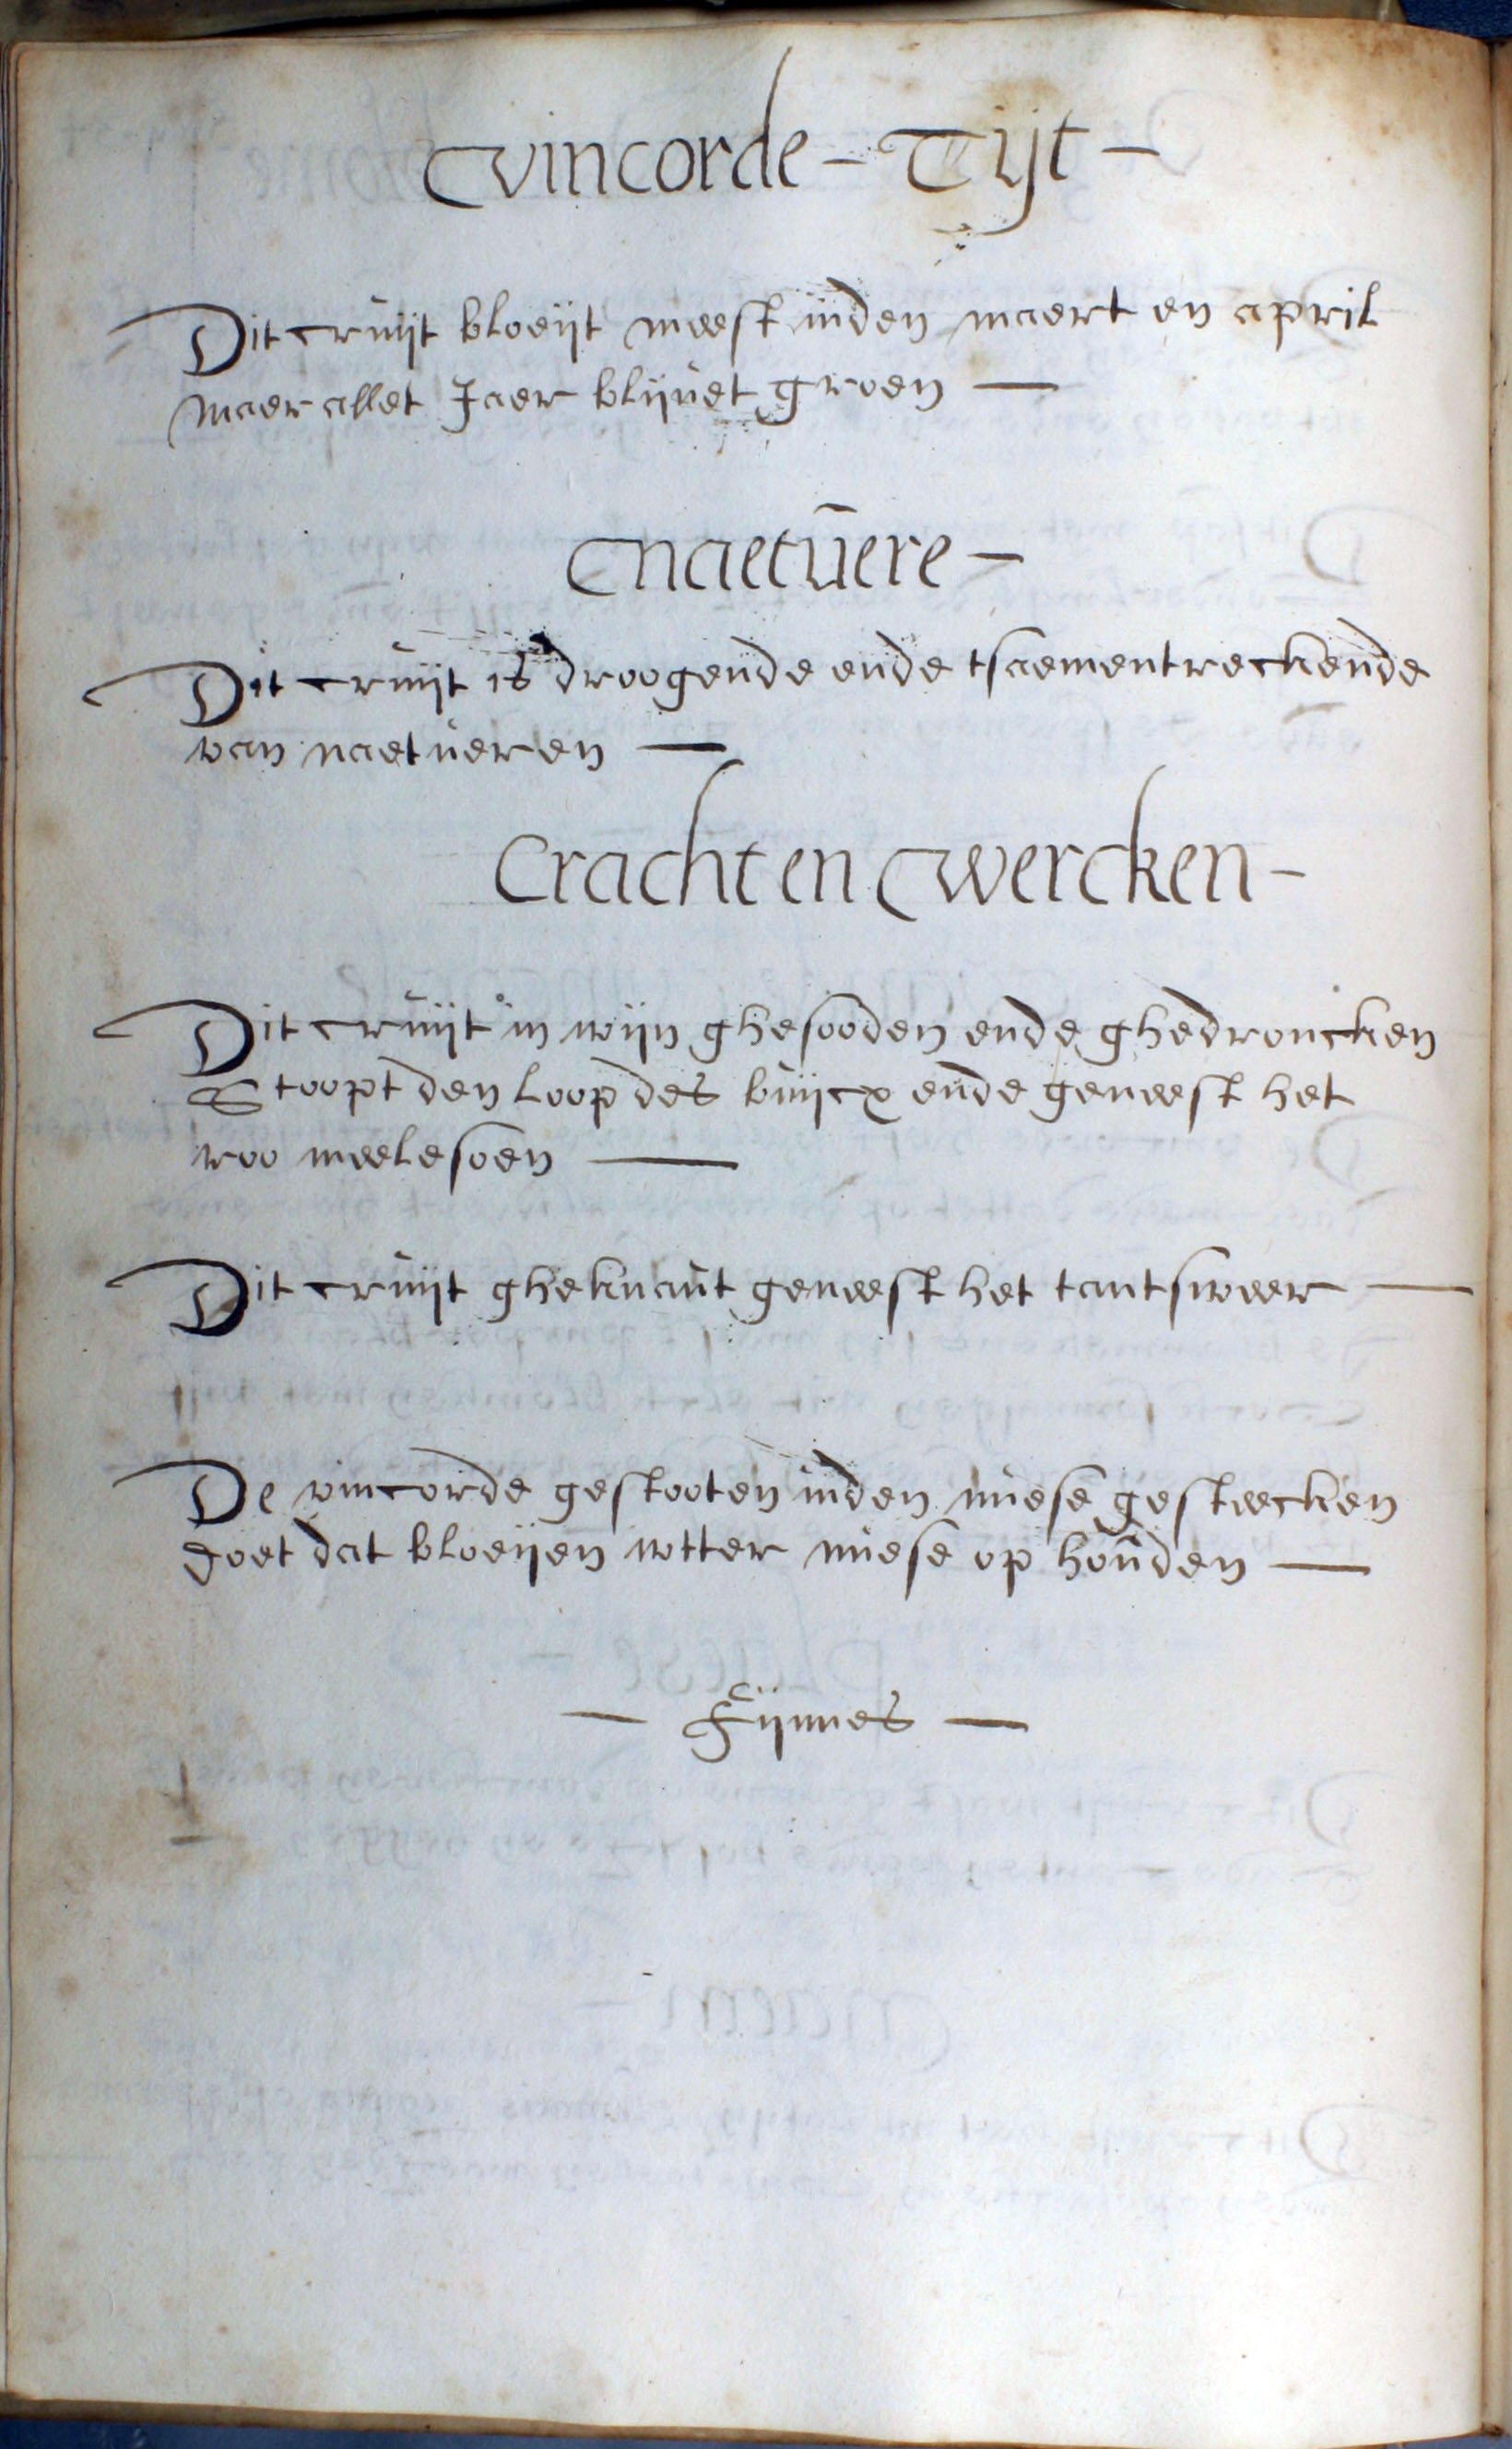 vincorde - Tijt -
Dit cruijt bloeijt meest inden maert en april
maer allet Jaer blijuet groen —
naetuere -
Dit cruijt is droogende ende tsaementreckende
van naetueren —
Cracht en wercken -
Dit cruijt in wijn ghesooden ende ghedroncken
Stoopt den loop des buijcx ende geneest het
roo meelesoen —
Dit cruijt gheknaut geneest het tantsweer —
De vincorde gestooten inden nuese gesteecken
doet dat bloeijen wtter nuese op houden —
— Fijnnes —